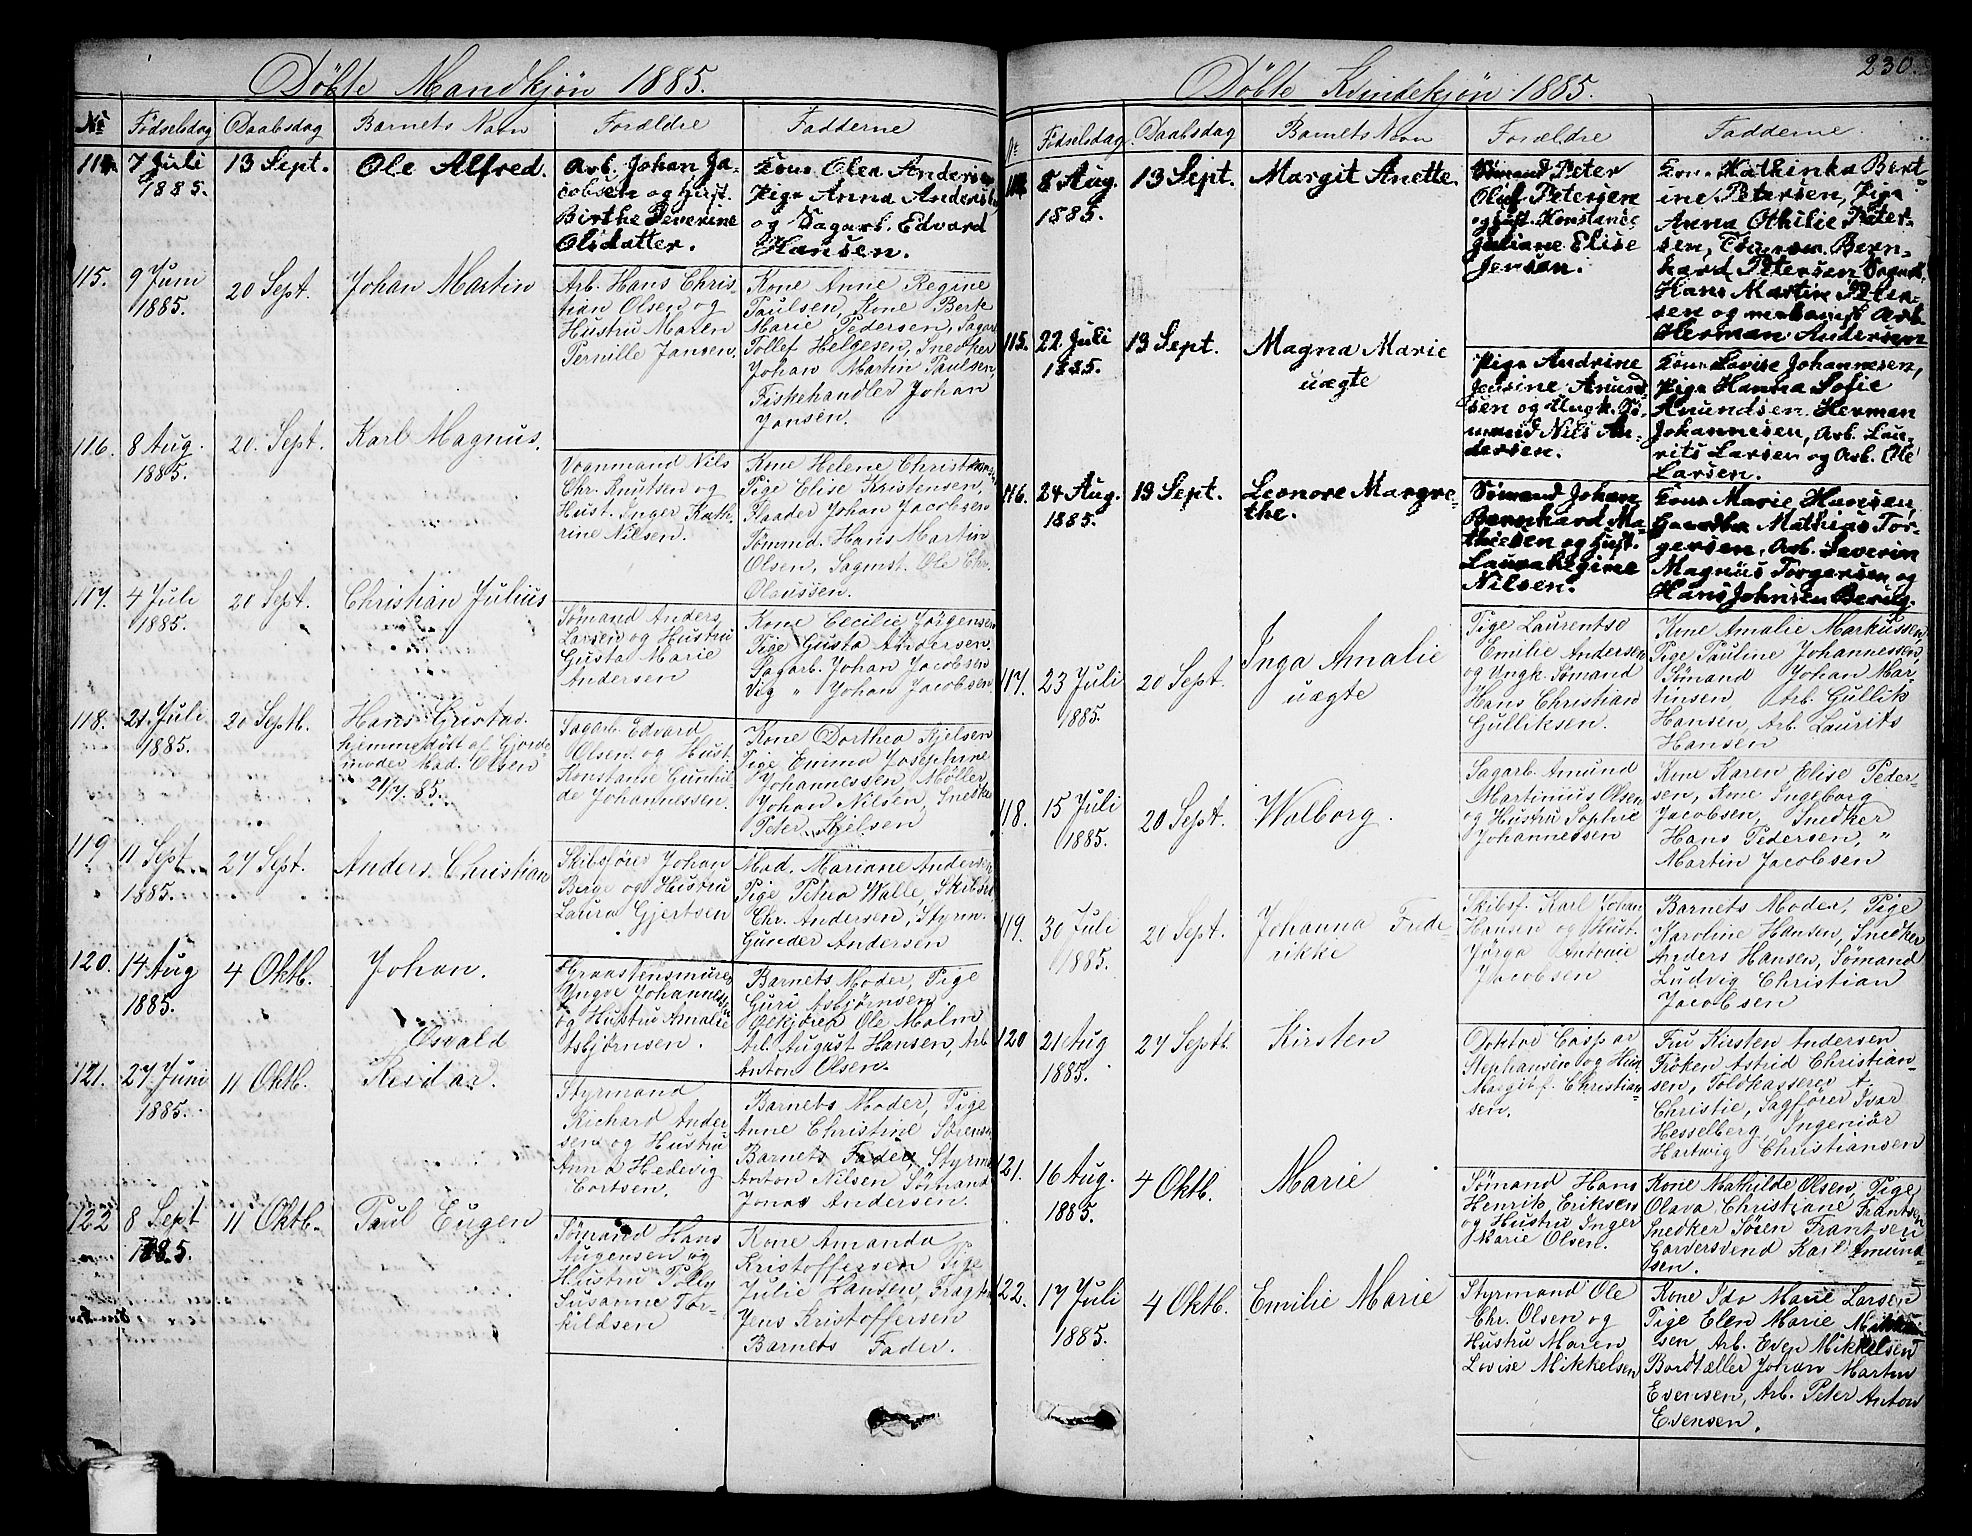 230.
Döbte Mandkjön 1885.
No Födselsdag Daabsdag Barnets Navn Forældre Fadderne
114. 7 Juli 1885. 13 Sept. Ole Alfred.
Arb. Johan Ja-
cobsen og Hust.
Birthe Severine
Olsdatter.
Kone Olea Andersen
Pige Anna Andersen
og Sagarb. Edvard
Hansen.
115. 9 Juni 1885. 20 Sept. Johan Martin
Arb. Hans Chris-
tian Olsen og
Hustru Maren
Pernille Jansen.
Kone Anne Regine
Paulsen, Kone Berte
Marie Pedersen, Sagarb
Tollef Helgesen, Snedker
Johan Martin Paulsen,
Fiskehandler Johan
Jansen.
116. 8 Aug. 1885. 20. Sept. Karl Magnus.
Vognmand Nils
Chr. Knutsen og
Hust. Inger Kath-
rine Nilsen.
Kone Helene
Pige Elise Kristensen,
Johan Jacobsen
Sömmd. Hans Martin
Olsen, Sagmst. Ole Chr.
Olaussen.
117. 4 Juli 1885. 20 Sept. Christian Julius
Sömand Anders
Larsen og Hustru
Gusta Marie
Andersen
Kone Cecilie Jörgensen
Pige Gusta Andersen.
Sagarb. Johan Jacobsen
Vig " Johan Jacobsen
118. 21. Juli 1885. 20 Septb. Hans Gustav
hjemmedöbt af Gjorde
moder Mad. Olsen
21/7. 85.
Sagarb. Edvard
Olsen og Hust.
Konstanse Gunhil-
de Johannessen.
Kone Dorthea Kjelsen
Pige Emma Josephine
Johannessen, Möller
Johan Nilsen, Snedker
Peter Kjelsen
119. 11 Sept. 1885. 27 Sept. Anders Christian
Skibsförer Johan
Berge og Hustru
Laura Gjertsen
Mad. Mariane Andersen
Pige Petra Walle, Skibsf
Chr. Andersen, Styrm.
Gunder Andersen
120. 14 Aug 1885. 4 Oktb. Johan.
Graastensmurer
Yngve Johannesen
og Hustru Amalie
Asbjörnsen.
Barnets Moder, Pige
Guri Asbjörnsen
Ole Malm
Arb. August Hansen, Arb.
Anton Olsen.
121. 27 Juni 1885. 11 Oktb. Osvald
Reidar.
Styrmand
Richard Ander-
sen og Hustru
Anna Hedevig
Cortsen.
Barnets Moder, Pige
Anne Christine Sörensen
Barnets Fader, Styrm
Anton Nilsen Sömand
Jonas Andersen.
122 8 Sept 1885. 11 Oktb. Paul Eugen
Sömand Hans
Augensen og
Hustru Polly
Susanne Tor-
kildsen
Kone Amanda
Kristoffersen Pige
Julie Hansen,
Jens Kristoffersen
Barnets Fader.
Döbte Kvindekjön 1885.
Nr Födselsdag Daabsdag Barnets Navn Forældre Fadderne
114. 8 Aug. 1885. 13 Sept. Margit Anette.
Sömand Peter
Oluf Petersen
og Hust. Konstanse
Juliane Elise
Jensen.
Kone Kathinka Bert-
ine Petersen, Pige
Anna Othilie Peter-
sen, Tömrm. Bern-
hard Petersen Sömnd.
Hans Martin Peter-
sen og Arb.
Herman Andersen
115. 22 Juli 1885. 13 Sept. Magna Marie
uægte
Pige Andrine
Jensine Anund-
sen og Ungk. Sö-
mand Nils An-
dersen.
Kone Lovise Johannesen,
Pige Hanna Sofie
Anundsen, Herman
Johannesen, Arb. Lau-
rits Larsen og Arb. Ole
Larsen.
116. 24 Aug. 1885. 13 Sept. Leonore Margre-
the.
Sömand Johan
Bernhard Ma-
thiesen og Hust.
Laura Regine
Nilsen.
Kone Marie Hansen,
Mathias Tor-
gersen, Arb. Severin
Magnus Torgersen og
Hans Johnsen Berug.
117. 23 Juli 1885. 20 Sept. Inga Amalie
uægte
Pige Laurentse
Emilie Andersen
og Ungk. Sömand
Hans Christian
Gulliksen.
Kone Amalie Markussen,
Pige Pauline Johannessen,
Sömand Johan Mar-
tinsen Arb. Gullik
Hansen, Arb. Laurits
Hansen
118. 15 Juli 1885. 20 Sept. Walborg.
Sagarb. Amund
Martinius Olsen
og Hustru Sophie
Johannessen
Kone Karen Elise Peder-
sen, Kone Ingeborg
Jacobsen, Snedker
Hans Pedersen, "
Martin Jacobsen
119. 30 Juli 1885. 20 Sept. Johanna Frede-
rikke
Skibsf. Karl Johan
Hansen og Hust.
Jörga Antonie
Jacobsen
Barnets Moder, Pige
Karoline Hansen, Snedker
Anders Hansen, Sömand
Ludvig Christian
Jacobsen
120 21 Aug 1885. 27 Septb. Kirsten
Doktor Caspar
Stephansen og Hust
Margit f. Christian-
sen.
Fru Kirsten Andersen
Fröken Astrid Christian-
sen, Toldkasserer A.
Christie, Sagförer Ivar
Hesselberg Ingeniör
Hartwig Christiansen
121. 16 Aug. 1885. 4 Oktb. Marie
Sömand Hans
Henrik Eriksen
og Hustru Inger
Marie Olsen.
Kone Mathilde Olsen, Pige
Olava Christiane Frantsen
Snedker Sören Frantsen
Garversvend Karl Amund-
sen.
122. 17 Juli 1885. 4 Oktb. Emilie Marie
Styrmand Ole
Chr. Olsen og
Hustru Maren
Lovise Mikkelsen
Kone Ida Marie Larsen
Pige Elen Marie Mikkel-
sen, Arb. Even Mikkelsen
Bordtæller Johan Martin
Evensen, Arb. Peter Anton
Evensen.